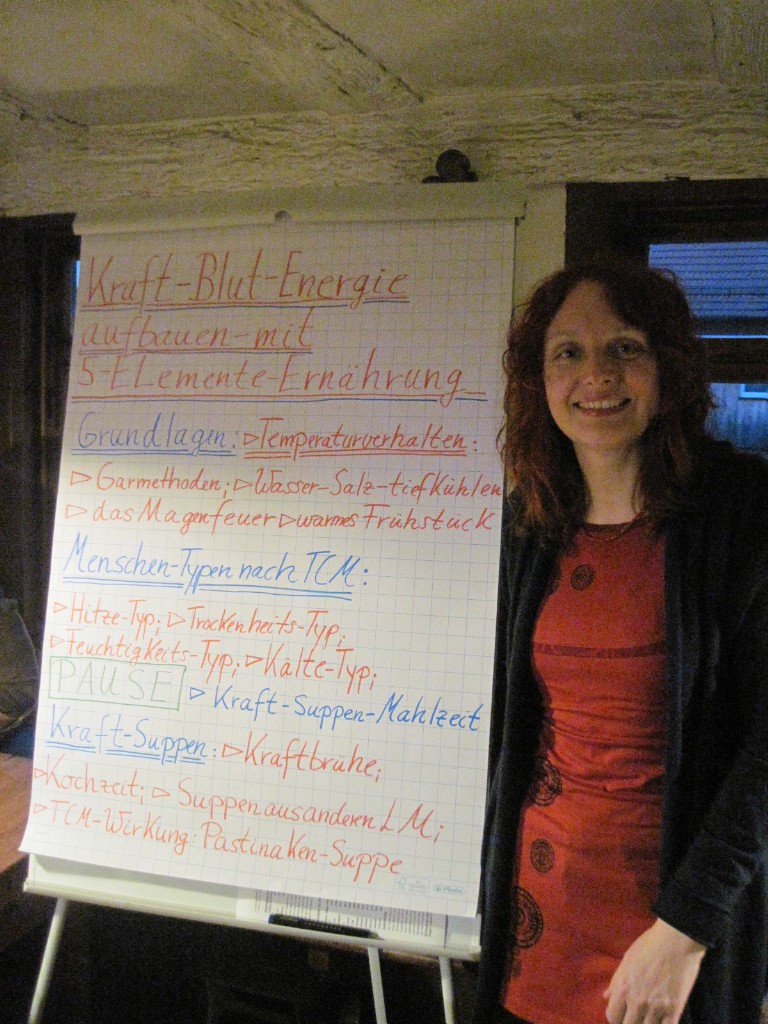 Kraft-Blut-Energie
aufbauen-mit
5-ELemente-Ernährung
Grundlagen: ▷Temperaturverhalten:
▷Garmethoden; ▷Wasser-Salz-tiefkühlen
▷das Magenfeuer ▷warmes Frühstück
Menschen-Typen nach TCM:
▷Hitze-Typ; ▷Trockenheits-Typ;
▷Feuchtigkeits-Typ; ▷Kälte-Typ;
PAUSE ▷ Kraft-Suppen-Mahlzeit
Kraft-Suppen: ▷Kraftbrühe;
▷Kochzeit; ▷ Suppen aus anderen LM;
▷TCM-Wirkung: Pastinaken-Suppe